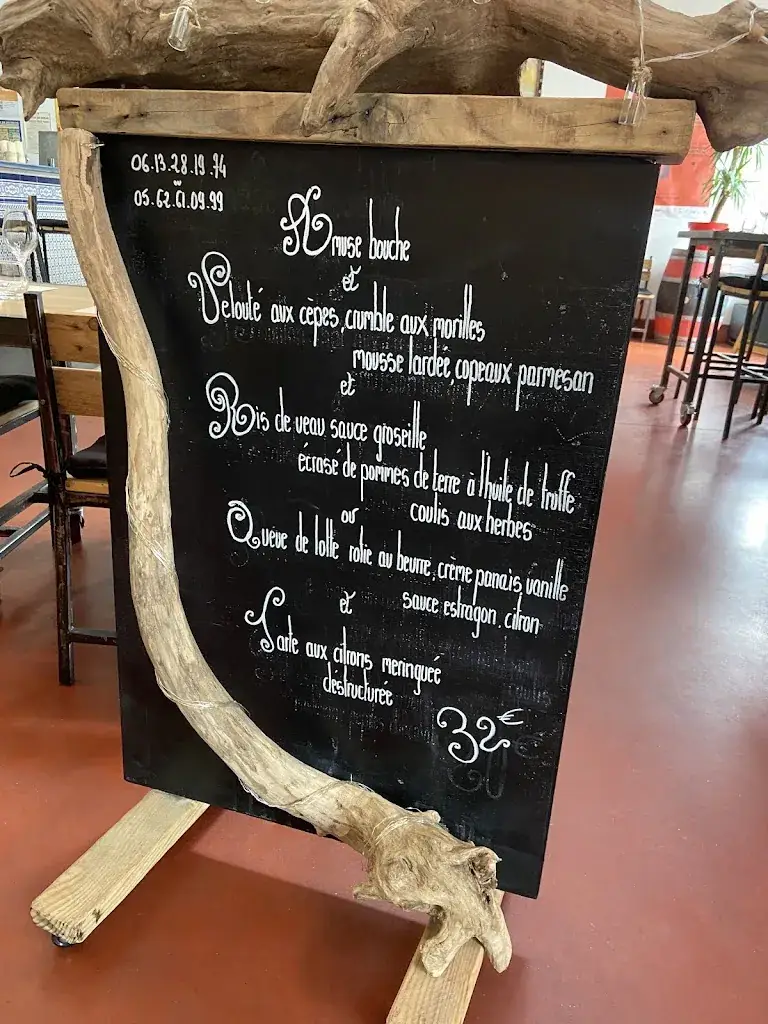 06.13.28.19.74
ou
05.62.61.09.99
Amuse bouche
et
Velouté aux cèpes, crumble aux morilles
mousse lardée, copeaux parmesan
et
Ris de veau sauce groseille
écrasé de pommes de terre à l'huile de truffe
coulis aux herbes
ou
Queue de lotte rotie au beurre, crème panais, vanille
sauce estragon, citron
et
Tarte aux citrons meringuée
déstructurée
32€